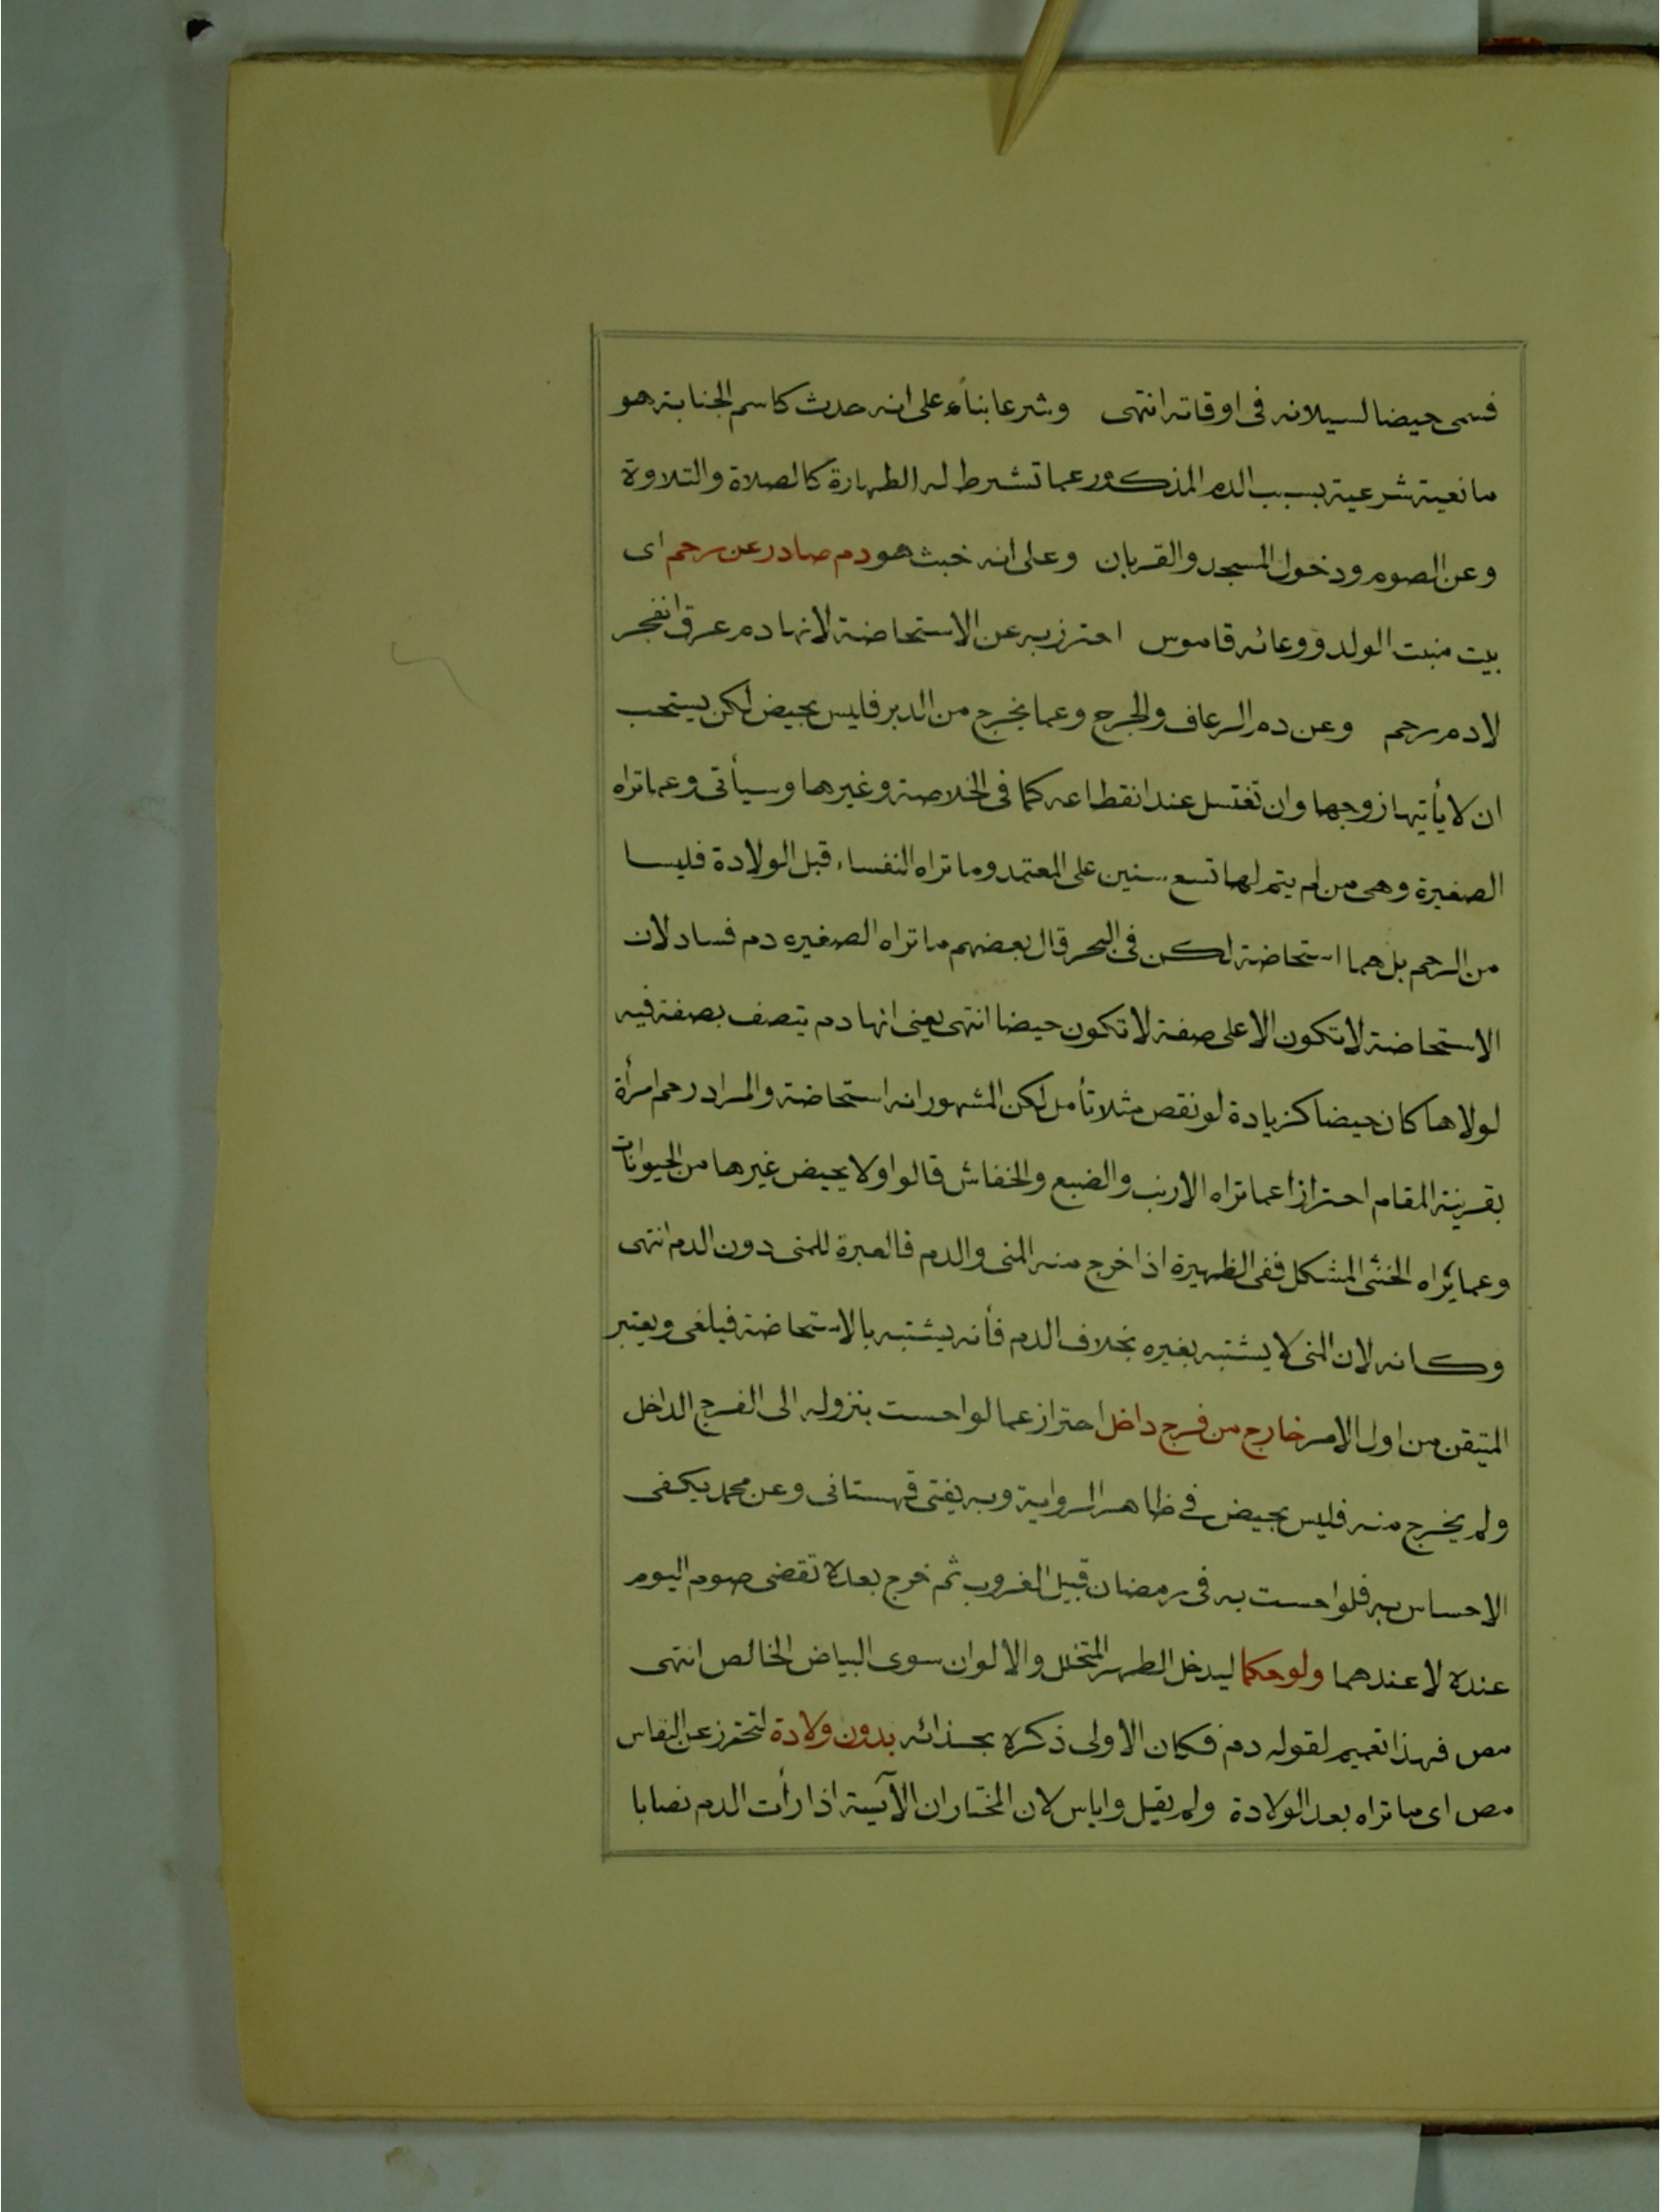 فسمى حيضا لسيلانه فى اوقاته انتهى وشرعا بناء على انه حدث كاسم الجنابة هو
مانعية شرعية بسبب الدم المذكور عما تشترط له الطهارة كالصلاة والتلاوة
وعن الصوم ودخول المسجد والقربان وعلى انه خبث هو دم صادر عن رحم اى
بيت منبت الولد ووعائه قاموس احترز به عن الاستحاضة لانها دم عرق انفجر
لا دم رحم وعن دم الرعاف والجرح وعما يخرج من الدبر فليس بحيض لكن يستحب
ان لا يأتيها زوجها وان تغتسل عند انقطاعه كما فى الخلاصة وغيرها وسيأتى وعما تراه
الصغيرة وهى من لم يتم لها تسع سنين على المعتمد وما تراه النفساء قبل الولادة فليسا
من الرحم بل هما استحاضة لكن فى البحر قال بعضهم ما تراه الصغيره دم فساد لان
الاستحاضة لا تكون الا على صفة لا تكون حيضا انتهى يعنى انها دم يتصف بصفة فيه
لولاها كان حيضا كزيادة لو نقص مثلا تأمل لكن المشهور انه استحاضة والمراد رحم امرأة
بقرينة المقام احترازا عما تراه الارنب والضبع والخفاش قالوا ولا يحيض غيرها من الحيوانات
وعما يراه الخنثى المشكل ففى الظهيرة اذا خرج منه المنى والدم فالعبرة للمنى دون الدم انتهى
وكانه لان المنى لا يشتبه بغيره بخلاف الدم فأنه يشتبه بالاستحاضة فيلغى ويعتبر
المتيقن من اول الامر خارج من فرج داخل احتراز عما لو احست بنزوله الى الفرج الداخل
ولم يخرج منه فليس بحيض فى ظاهر الرواية وبه يفتى قهستانى وعن محمد يكفى
الاحساس به فلو احست به فى رمضان قبيل الغروب ثم خرج بعده تقضى صوم اليوم
عنده لا عندهما ولو حكما ليدخل الطهر المتخلل والالوان سوى البياض الخالص انتهى
مص فهذا تعميم لقوله دم فكان الاولى ذكره بحذائه بدون ولادة لتحترز عن النفاس
مص اى ما تراه بعد الولادة ولم يقيل واياس لان المختار ان الآيسة اذا رأت الدم نصابا